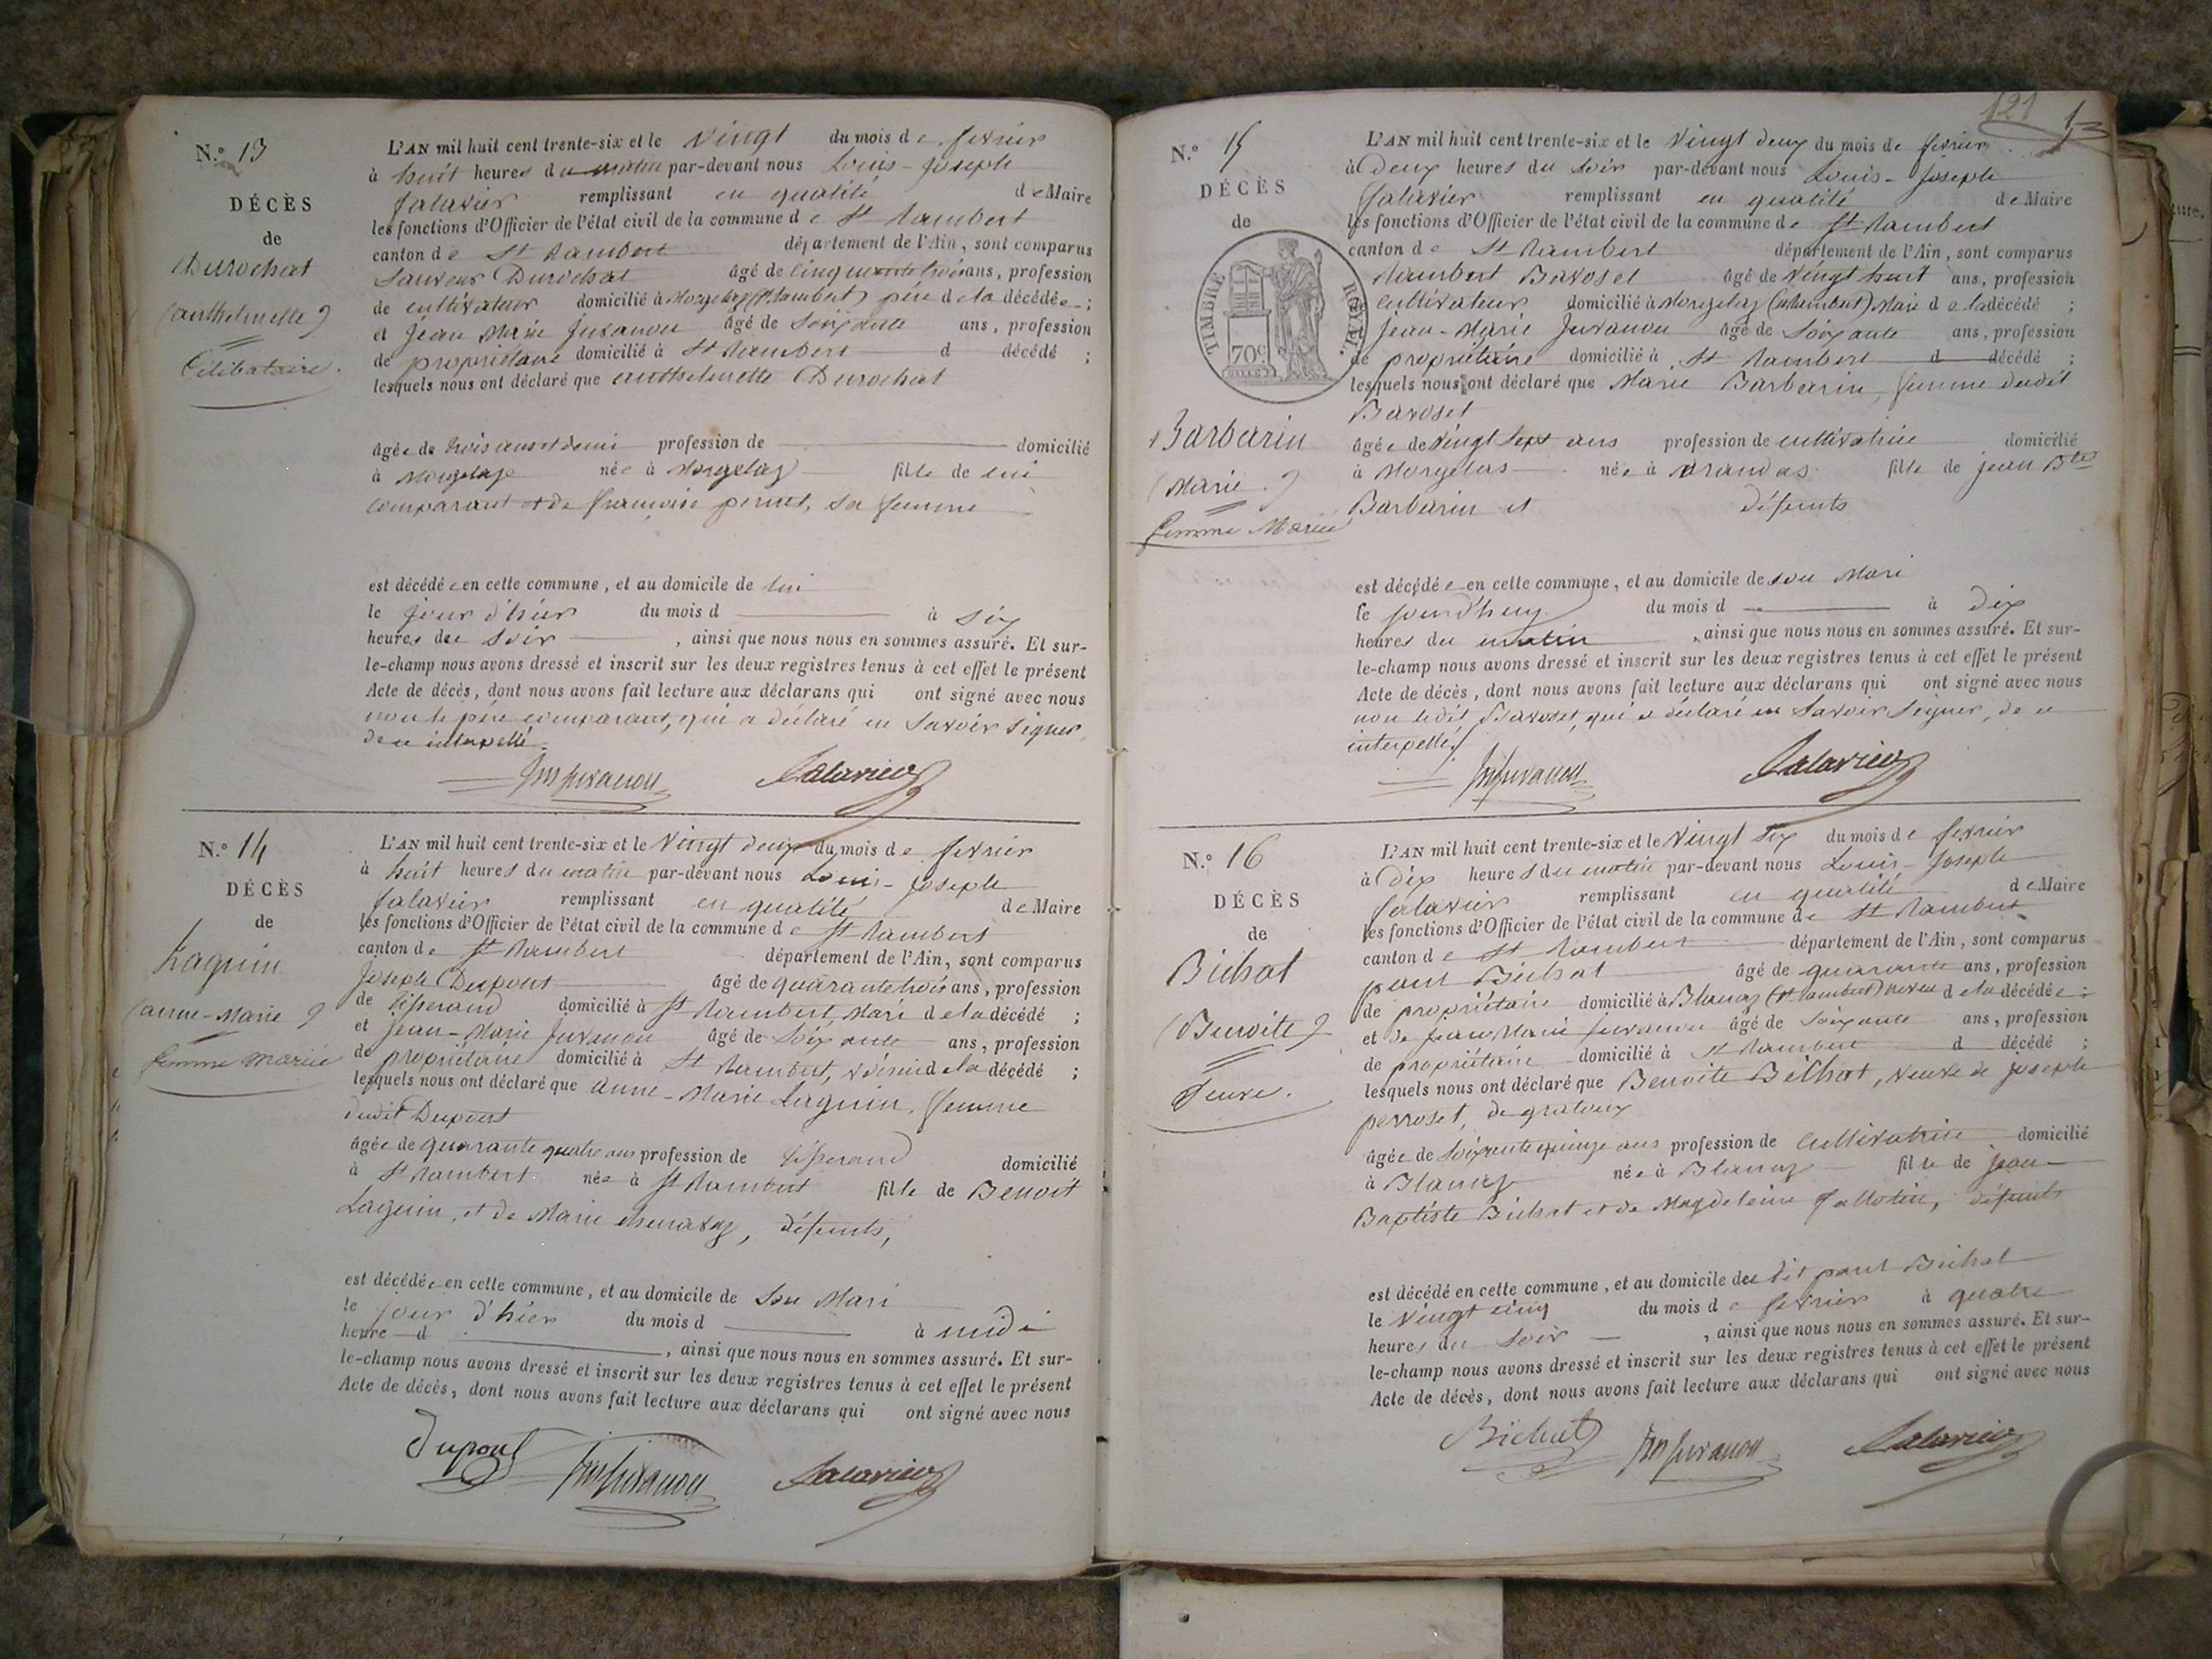 N.° 13
DÉCÈS
de
Durochat
(anthelmette)
Célibataire.
L'AN mil huit cent trente-six et le vingt du mois de février
à huit heures du matin par-devant nous Louis-Joseph
Falavier remplissant en qualité de Maire
les fonctions d'Officier de l'état civil de la commune de St Rambert
canton de St Rambert département de l'Ain, sont comparus
Durochat âgé de cinquante trois ans, profession
de cultivateur domicilié à Morgelas (St Rambert) père de la décédée ;
et Jean Marie Juvanon âgé de soixante ans, profession
de propriétaire domicilié à St Rambert d décédé ;
lesquels nous ont déclaré que anthelmette Durochat
âgée de trois ans et demi profession de domicilié
à Morgelas née à Morgelas fille de lui
comparant et de françoise pernet, sa femme
est décédée en cette commune, et au domicile de lui
le jour d'hier du mois d à six
heures du soir , ainsi que nous nous en sommes assuré. Et sur-
le-champ nous avons dressé et inscrit sur les deux registres tenus à cet effet le présent
Acte de décès, dont nous avons fait lecture aux déclarans qui ont signé avec nous
non le père comparant, qui a déclaré ne savoir signer
de ce interpellé.
Jm Juvanon Falavier
N.° 14
DÉCÈS
de
Laguin
(anne-Marie)
femme mariée
L'AN mil huit cent trente-six et le vingt deux du mois de février
à huit heures du matin par-devant nous Louis-Joseph
Falavier remplissant en qualité de Maire
les fonctions d'Officier de l'état civil de la commune de St Rambert
canton de St Rambert département de l'Ain, sont comparus
Joseph Dupont âgé de quarante trois ans, profession
de tisserand domicilié à St Rambert Mari de la décédé ;
et Jean-Marie Juvanon âgé de soixante ans, profession
de propriétaire domicilié à St Rambert, voisin de la décédé ;
lesquels nous ont déclaré que anne-Marie Laguin, femme
dudit Dupont
âgée de quarante quatre ans profession de tisserand domicilié
à St Rambert née à St Rambert fille de Benoit
Laguin, et de Marie chenavaz, défunts,
est décédée en cette commune, et au domicile de son Mari
le jour d'hier du mois d à midi
heure d , ainsi que nous nous en sommes assuré. Et sur-
le-champ nous avons dressé et inscrit sur les deux registres tenus à cet effet le présent
Acte de décès, dont nous avons fait lecture aux déclarans qui ont signé avec nous
Dupont Jm Juvanon Falavier
121
N.° 15
DÉCÈS
de
TIMBRE ROYAL
70c
Barbarin
(Marie)
femme Mariée
L'AN mil huit cent trente-six et le vingt deux du mois de février
à Deux heures du soir par-devant nous Louis-Joseph
Falavier remplissant en qualité de Maire
les fonctions d'Officier de l'état civil de la commune de St Rambert
canton de St Rambert département de l'Ain, sont comparus
Rambert Bavoset âgé de vingt huit ans, profession
cultivateur domicilié à Morgelas (St Rambert) Mari de la décédé ;
Jean-Marie Juvanon âgé de soixante ans, profession
de propriétaire domicilié à St Rambert d décédé ;
lesquels nous ont déclaré que Marie Barbarin, femme dudit
Bavoset
âgée de vingt sept ans profession de cultivatrice domicilié
à Morgelas née à Arandas fille de jean Bte
Barbarin et défunts
est décédée en cette commune, et au domicile de son Mari
le jourd'huy du mois d à dix
heures du matin , ainsi que nous nous en sommes assuré. Et sur-
le-champ nous avons dressé et inscrit sur les deux registres tenus à cet effet le présent
Acte de décès, dont nous avons fait lecture aux déclarans qui ont signé avec nous
non ledit Bavoset, qui a déclaré ne savoir signer, de ce
interpellé.
Jm Juvanon Falavier
N.° 16
DÉCÈS
de
Bichat
(Benoite)
veuve.
L'AN mil huit cent trente-six et le vingt six du mois de février
à dix heures du matin par-devant nous Louis-Joseph
Falavier remplissant en qualité de Maire
les fonctions d'Officier de l'état civil de la commune de St Rambert
canton de St Rambert département de l'Ain, sont comparus
paul Bichat âgé de quarante ans, profession
de propriétaire domicilié à Blanaz (St Rambert) neveu de la décédée ;
et de Jean Marie Juvanon âgé de soixante ans, profession
de propriétaire domicilié à St Rambert d décédé ;
lesquels nous ont déclaré que Benoite Bichat, veuve de joseph
perroset, de gratoux
âgée de soixante quinze ans profession de cultivatrice domicilié
à Blanaz née à Blanaz fille de jean
Baptiste Bichat et de Magdeleine Falloticu, défunts
est décédé en cette commune, et au domicile du dit paul Bichat
le vingt cinq du mois de février à quatre
heures du soir , ainsi que nous nous en sommes assuré. Et sur-
le-champ nous avons dressé et inscrit sur les deux registres tenus à cet effet le présent
Acte de décès, dont nous avons fait lecture aux déclarans qui ont signé avec nous
Bichat Jm Juvanon Falavier